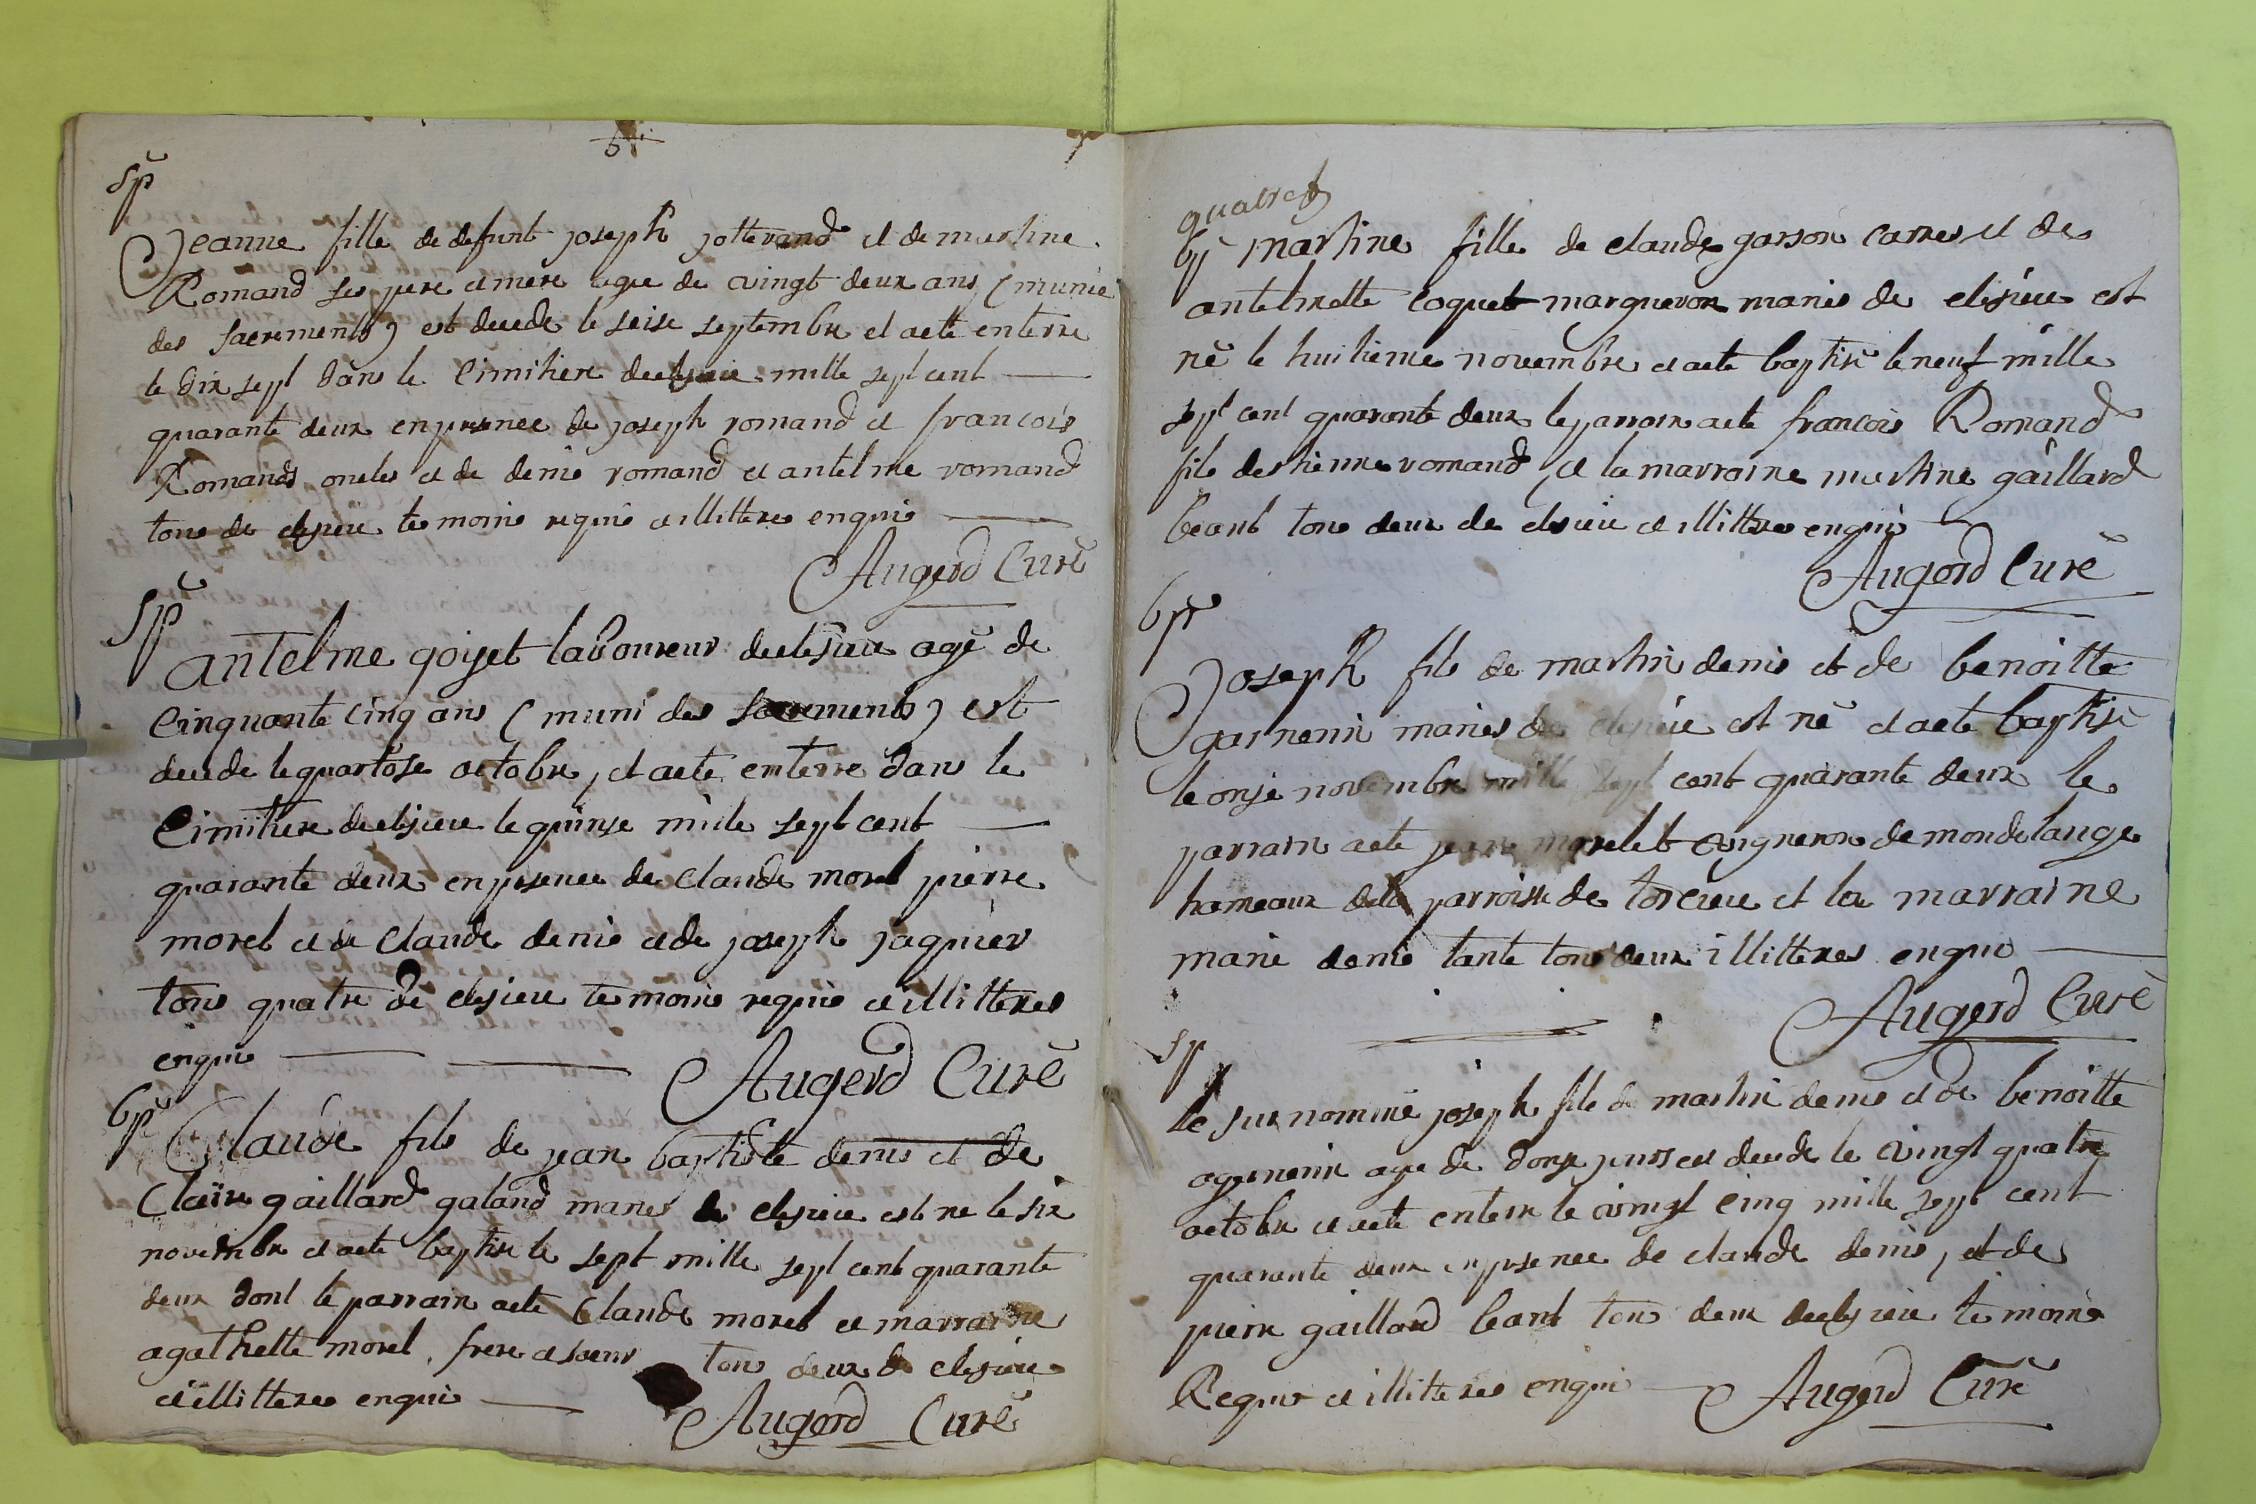 sp
Jeanne fille de defunt joseph jotterand et de martine
Romand ses pere et mere agee de vingt deux ans (munie
des sacrements) est decede le seise septembre et a ete enterre
le dix sept dans le cimitiere declesieu mille sept cent
quarante deux en presence de joseph romand et francois
Romands oncles et de denis romand et antelme romand
tous de clesieu temoins requis et illitteres enquis
Augerd Curé
sp
antelme goyet laboureur declesieu agé de
cinquante cinq ans (muni des sacrements) est
decede le quartose octobre, et a ete enterre dans le
cimitiere declesieu le quinse mille sept cent
quarante deux en presence de claude morel pierre
morel et de claude denis et de joseph jaquier
tous quatre de clesieu temoins requis et illitteres
enquis
Augerd Curé
bp
Claude fils de jean baptiste denis et de
Claire gaillard galand maries de clesieu est ne le six
novembre et a ete baptise le sept mille sept cent quarante
deux dont le parrain a ete Claude morel et marraine
agathette morel, frere et soeur tous deux de clesieu
et illitteres enquis
Augerd Curé
bp martine fille de claude garson carres et de
antelmette coquet marquevon maries de clesieu est
né le huitieme novembre et a ete baptisé le neuf mille
sept cent quarante deux le parrain a ete francois Romand
fils destienne romand, et la marraine martine gaillard
beant tous deux de clesieu et illitteres enquis
Augerd Curé
bp
Joseph fils de martin denis et de benoitte
garnenin maries de clesieu est né et a ete baptisé
le onse novembre mille sept cent quarante deux le
parrain a ete jean morelet vigneron de mondelange
hameaux dela parroisse de torcieu et la marraine
marie denis tante tous deux illitteres enquis
Augerd Curé
sp
le surnommé joseph fils de martin denis et de benoitte
agee de donse jours est decede le vingt quatre
octobre et a ete enterre le vingt cinq mille sept cent
quarante deux en presence de claude denis, et de
pierre gaillard beant tous deux declesieu temoins
Requis et illitteres enquis
Augerd Curé